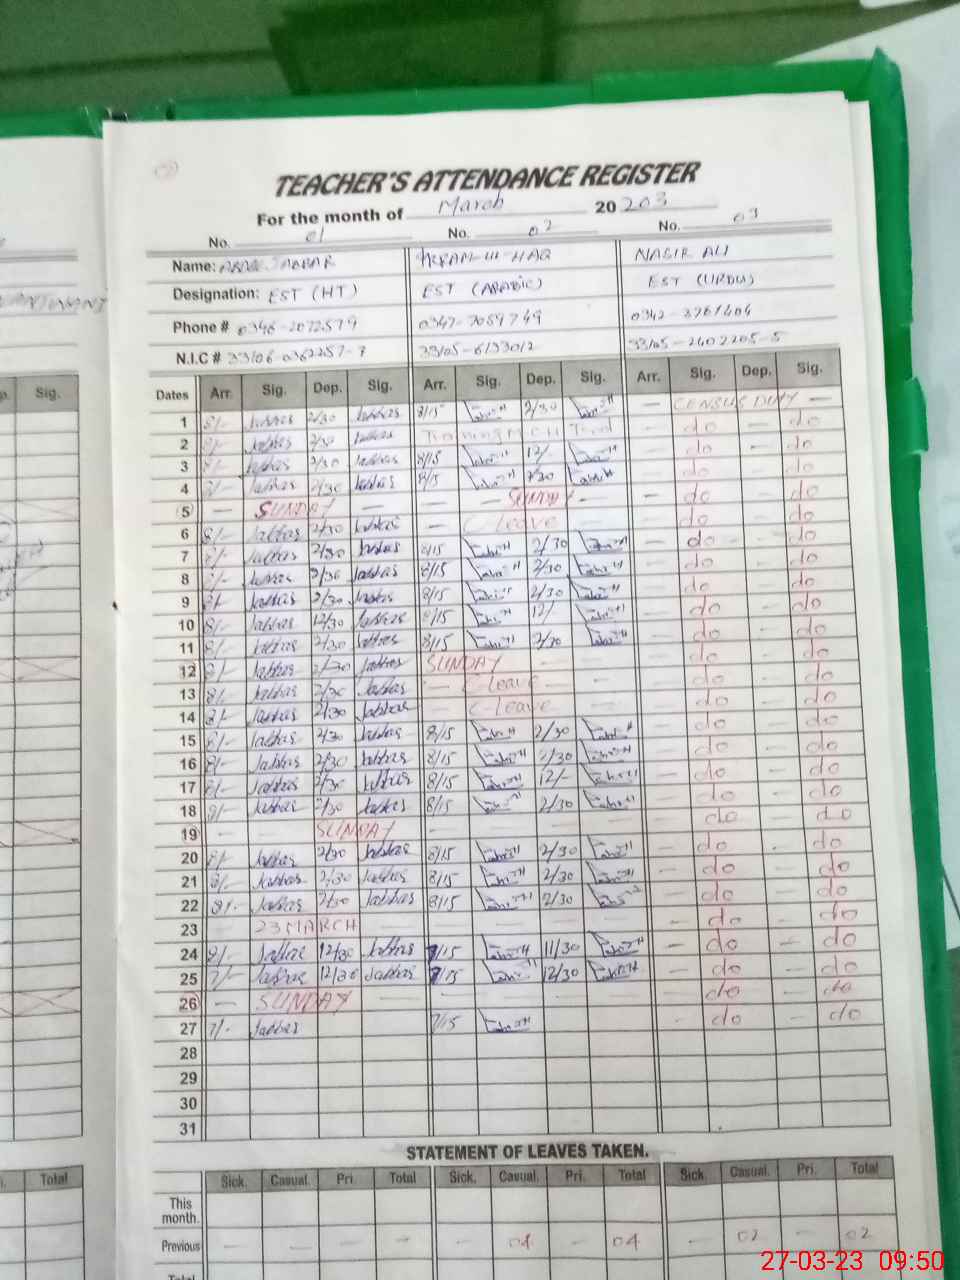 TEACHER'S ATTENDANCE REGISTER
For the month of March 20 203
No. 01 No. 02 No. 03
Name: JABBAR HAQ NASIR ALI
Designation: EST (HT) EST (ARABIC) EST (URDU)
Phone # 0346-2072579 0347-7059749 0342-3761404
N.I.C # 33106-0362257-7 33105-6133012 33105-2402205-5
p. Sig.
Dates Arr. Sig. Dep. Sig. Arr. Sig. Dep. Sig. Arr. Sig. Dep. Sig.
1 8/- Jabbar 2/30 Jabbar 8/15 2/30 — CENSUS DUTY —
2 8/- Jabbar 2/30 Jabbar Training — do — do
3 8/- Jabbar 2/30 Jabbar 8/15 12/- — do — do
4 8/- Jabbar 2/30 Jabbar 8/15 2/30 — do — do
5 — SUNDAY — — SUNDAY — — do — do
6 8/- Jabbar 2/30 Jabbar — C leave — do — do
7 8/- Jabbar 2/30 Jabbar 8/15 2/30 — do — do
8 8/- Jabbar 2/30 Jabbar 8/15 2/30 — do — do
9 8/- Jabbar 2/30 Jabbar 8/15 2/30 — do — do
10 8/- Jabbar 12/30 Jabbar 8/15 12/- — do — do
11 8/- Jabbar 2/30 Jabbar 8/15 2/30 — do — do
12 8/- Jabbar 2/30 Jabbar SUNDAY — — do — do
13 8/- Jabbar 2/30 Jabbar — C leave — — do — do
14 8/- Jabbar 2/30 Jabbar — C leave — do — do
15 8/- Jabbar 2/30 Jabbar 8/15 2/30 — do — do
16 8/- Jabbar 2/30 Jabbar 8/15 2/30 — do — do
17 8/- Jabbar 2/30 Jabbar 8/15 12/- — do — do
18 8/- Jabbar 2/30 Jabbar 8/15 2/30 — do — do
19 — — SUNDAY — — — — do — do
20 8/- Jabbar 2/30 Jabbar 8/15 2/30 — do — do
21 8/- Jabbar 2/30 Jabbar 8/15 2/30 — do — do
22 8/- Jabbar 2/30 Jabbar 8/15 2/30 — do — do
23 — 23 MARCH — — — — — do — do
24 8/- Jabbar 12/30 Jabbar 7/15 11/30 — do — do
25 7/- Jabbar 12/30 Jabbar 7/15 12/30 — do — do
26 — SUNDAY — — — — — do — do
27 7/- Jabbar 7/15 — do — do
28
29
30
31
STATEMENT OF LEAVES TAKEN.
i. Total
Sick. Casual. Pri. Total Sick. Casual. Pri. Total Sick. Casual. Pri. Total
This
month.
Previous — — — — — 04 — 04 — 02 — 02
Total
27-03-23 09:50